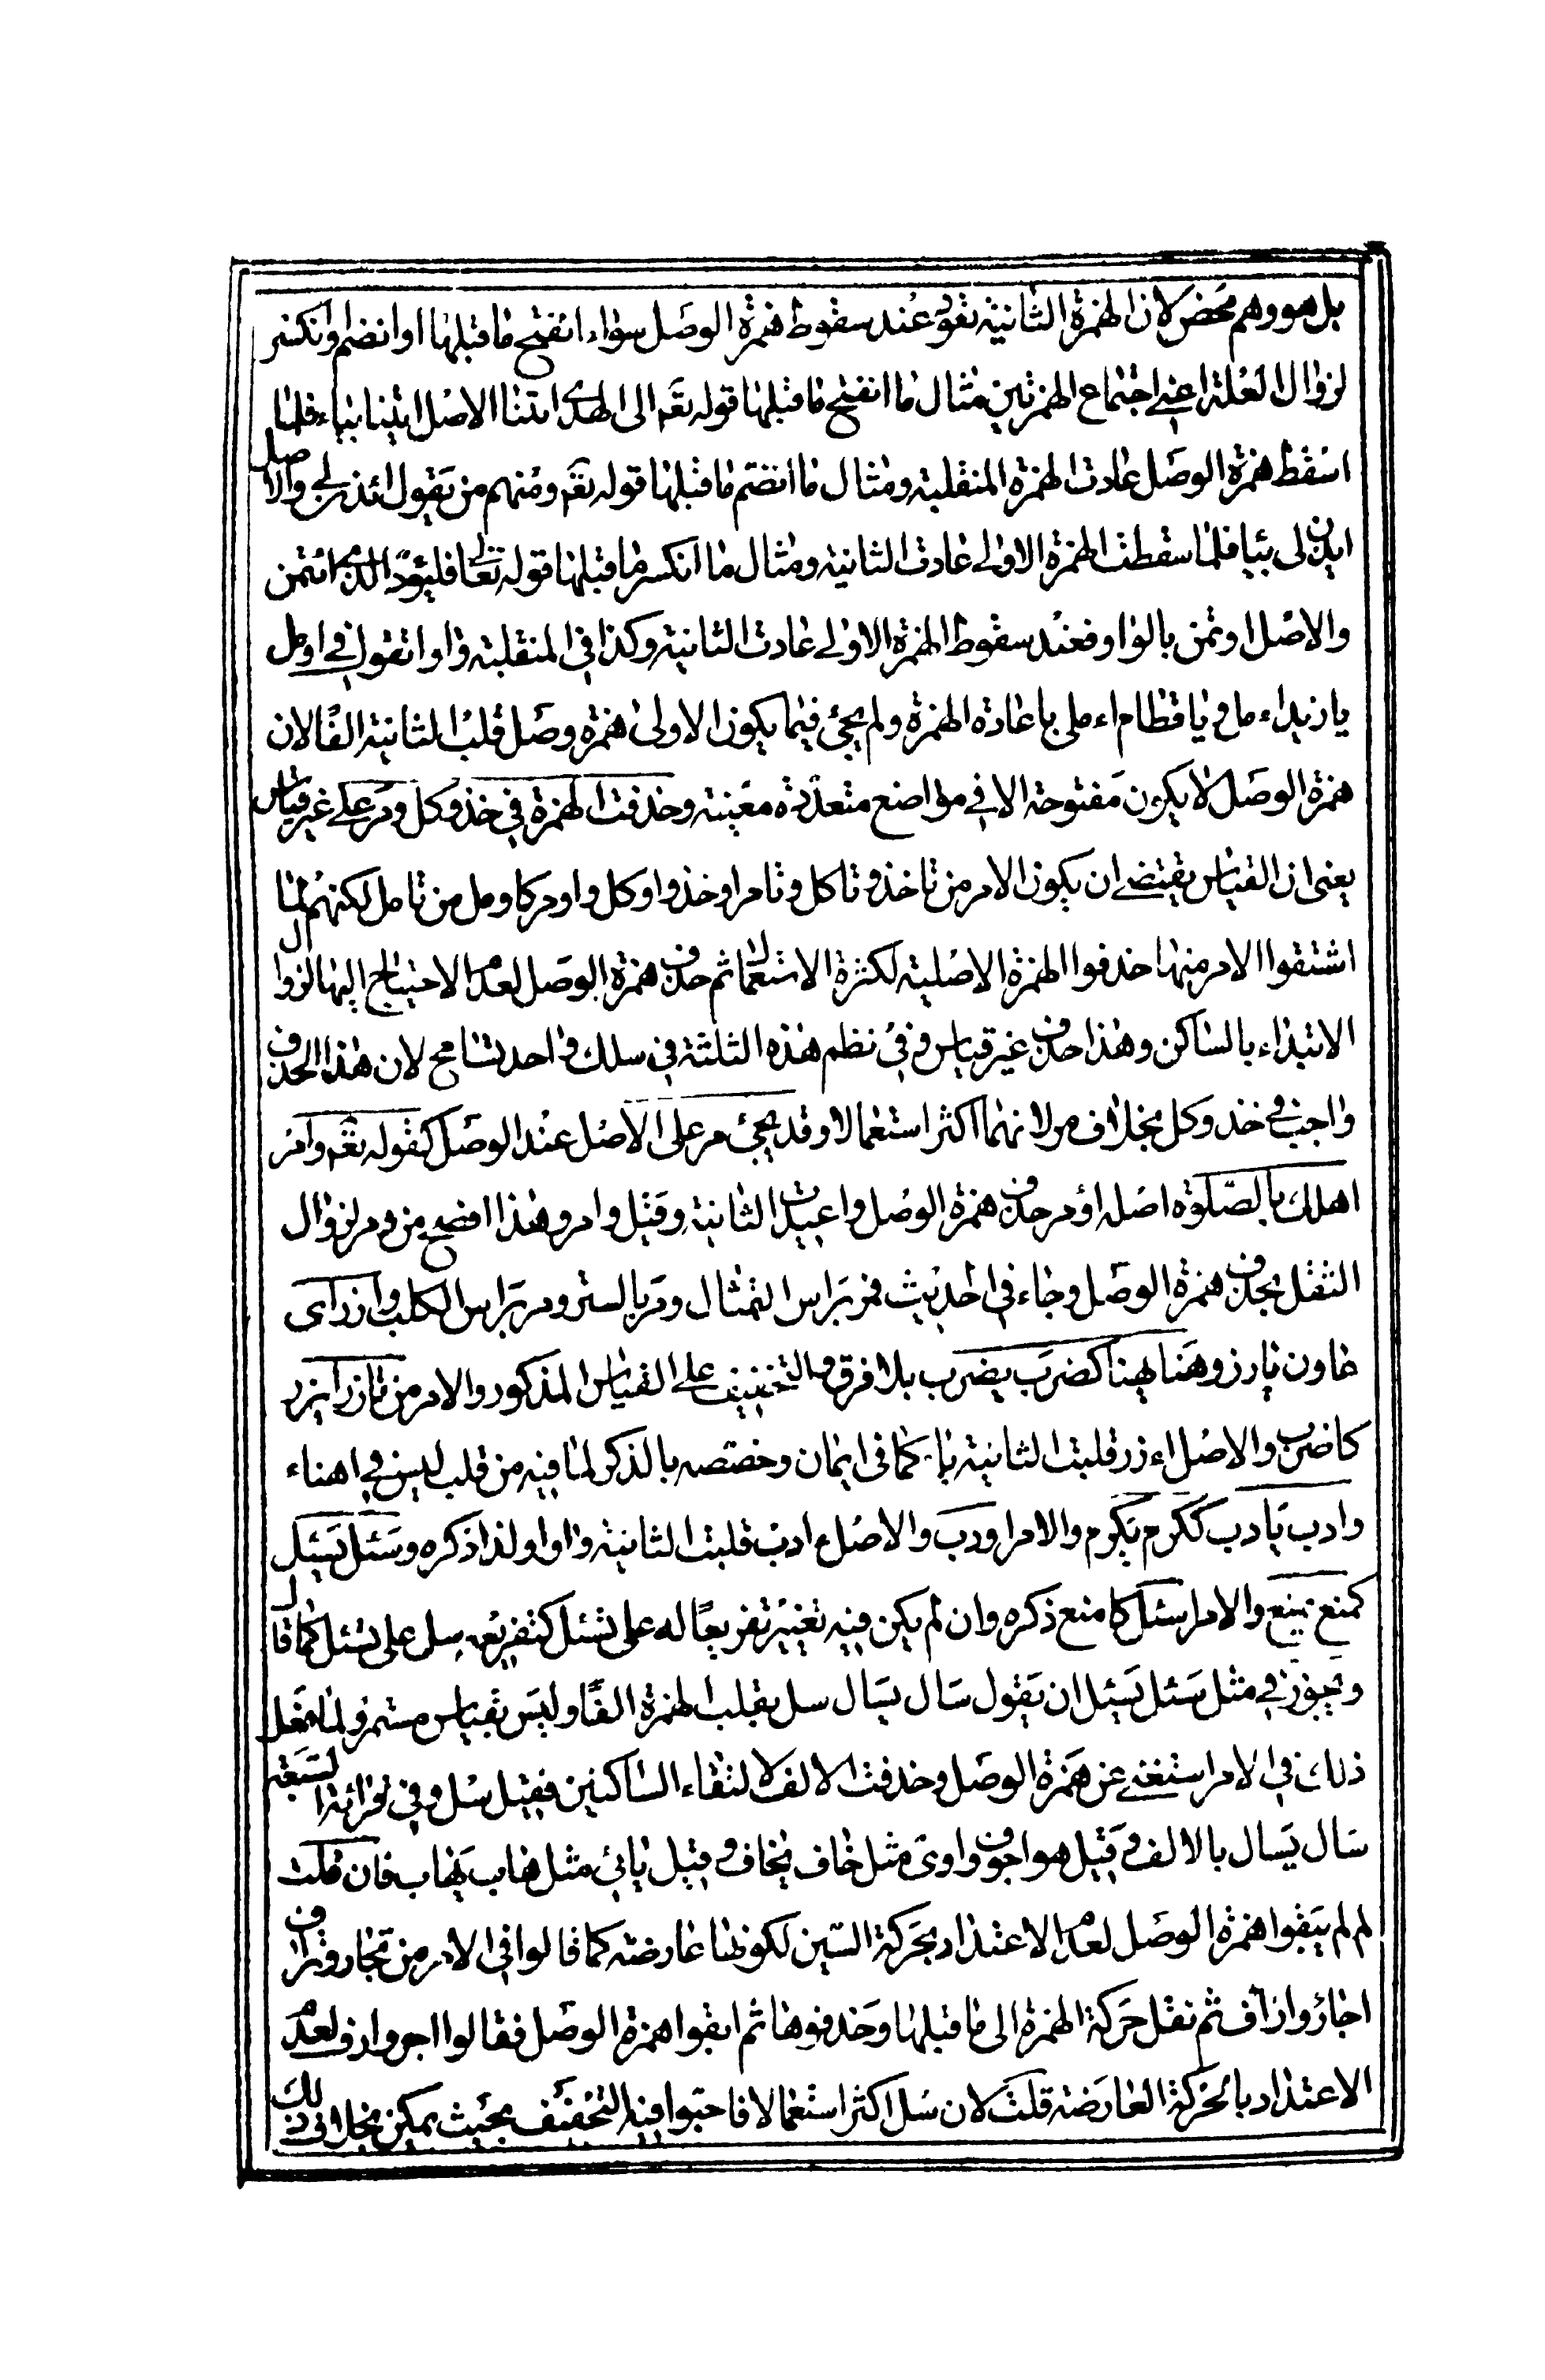 بل هو وهم محض لان الهمزة الثانية تعود عند سقوط همزة الوصل سواء انفتح ما قبلها او انضم وانكسر
لزوال العلة اعنى اجتماع الهمزتين مثال ما انفتح ما قبلها قوله تعَ الى الهدى ائتنا الاصل ايتنا بياء فلما
اسقط همزة الوصل عادت الهمزة المنقلبة ومثال ما انضم ما قبلها قوله تعَ ومنهم من يقول ائذن لي والاصل
ايذن لى بيا فلما سقطت الهمزة الاولى عادت الثانية ومثال ما انكسر ما قبلها قوله تعالى فليؤد الذى ائتمن
والاصل اوتمن بالواو فعند سقوط الهمزة الاولى عادت الثانية وكذا في المنقلبة واوا تقول في اومل
يا زيداء مل و يا قطام اء ملى باعادة الهمزة ولم يجئ فيما يكون الاولى همزة وصل قلب الثانية الفا لان
همزة الوصل لا يكون مفتوحة الا في مواضع متعددة معينة وحذفت الهمزة في خذ وكل ومر على غير قياس
يعنى ان القياس يقتضى ان يكون الامر من تاخذ وتاكل وتامر اوخذ واوكل واومر كاومل من تامل لكنهم لما
اشتقوا الامر منها حذفوا الهمزة الاصلية لكثرة الاستعمال ثم حذف همزة الوصل لعدم الاحتياج اليها لزوال
الابتداء بالساكن وهذا حذف غير قياس وفي نظم هذه الثلثة في سلك واحد تسامح لان هذا الحذف
واجب في خذ وكل بخلاف مر لانهما اكثر استعمالا وقد يجئ مر على الاصل عند الوصل كقوله تعَ وامر
اهلك بالصلوة اصله اؤمر حذف همزة الوصل واعيدت الثانية وقيل وامر وهذا افصح من ومر لزوال
الثقل بحذف همزة الوصل وجاء في الحديث فمر براس التمثال ومر بالستر ومر براس الكلب وازر اى
عاون يارز وهنا يهنا كضرب يضرب بلا فرق والتخفيف على القياس المذكور والامر من تازر ايزر
كاضرب والاصل اءزر قلبت الثانية ياء كما فى ايمان وخصصه بالذكر لما فيه من قلب ليس في اهناء
وادب يادب ككرم يكرم والامر اودب والاصل ءادب قلبت الثانية واوا ولذا ذكره وسئل يسئل
كمنع يمنع والامر اسئل كامنع ذكره وان لم يكن فيه تغيير تفريعا له على تسئل كتفريعه سل على تسئل كما قال
ويجوز في مثل سئل يسئل ان يقول سال يسال سل بقلب الهمزة الفا وليس بقياس مستمر ولما فعل
ذلك في الامر استغنى عن همزة الوصل وحذفت الالف لالتقاء الساكنين فقيل سل وفي قرائة السبعة
سال يسال بالالف وقيل هو اجوف واوى مثل خاف يخاف وقيل يائى مثل هاب يهاب فان قلت
لم لم يبقوا همزة الوصل لعدم الاعتداد بحركة السين لكونها عارضة كما قالوا في الامر من تجار وتراف
اجار واراف ثم نقل حركة الهمزة الى ما قبلها وحذفوها ثم ابقوا همزة الوصل فقالوا اجر وارف لعدم
الاعتداد بالحركة العارضة قلت لان سل اكثر استعمالا فاحبوا فيه التخفيف بحيث يمكن بخلاف ذلك